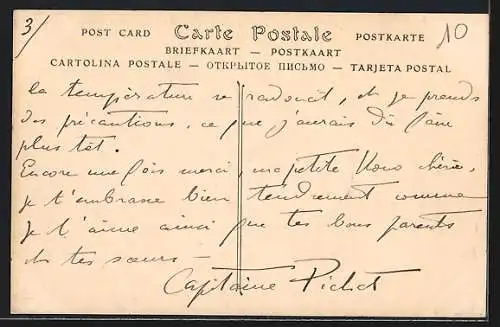 3/
POST CARD Carte Postale POSTKARTE 10
BRIEFKAART — POSTKAART
CARTOLINA POSTALE — ОТКРЫТОЕ ПИСЬМО — TARJETA POSTAL
la température se radoucit, et je prends
des précautions, ce que j'aurais dû faire
plus tôt.
Encore une fois merci, ma petite chérie,
je t'embrasse bien tendrement comme
je t'aime ainsi que tes bons parents
et tes sœurs —
Capitaine Pichot